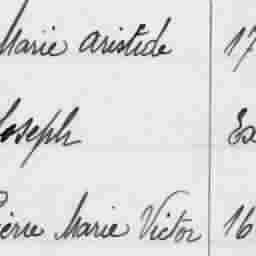 Marie Aristide 17
Joseph Ex
Pierre Marie Victor 16